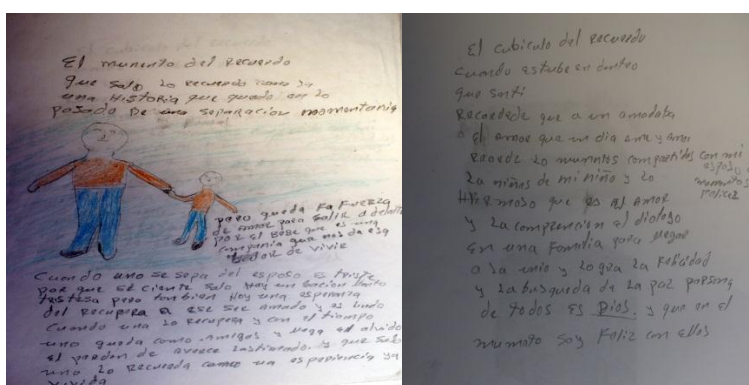 El mumento del Recuerdo
que solo lo recuerdo como ya
una HistoRia que quedo en lo
pasado De una separacion momontania
pero queda La Fuerza
de amor para salir a delante
por el Bebe que es una
compania que nos da esa
valor de vivir
Cuando uno se sepa del esposo es triste
por que se ciente solo Hoy un bacion
tristesa pero tambien Hoy una esperanza
del Recupera a ese ser amado y es
Cuando una lo recupera y con el tiempo
uno queda como amigos y llega el olvido
el perdon de averce lastimado. y que solo
uno lo recuerda como una esperiencia ya
vivida
El cubiculo del recuerdo
Cuando estube en dentro
que senti
Recordede que a un amadaba
o el amor que un dia ame y amor
Recorde lo mumntos compartidos con mi
esposo,
La niñas de mi niño y lo mumento
felices
HERmoso que es el amor
y La comprencion el dialogo
En una Familia para llegar
a la unio y Logra La Felicidad
y La busqueda de La paz porsona
de todos es Dios. y que en el
mumoto soy Feliz con ellos